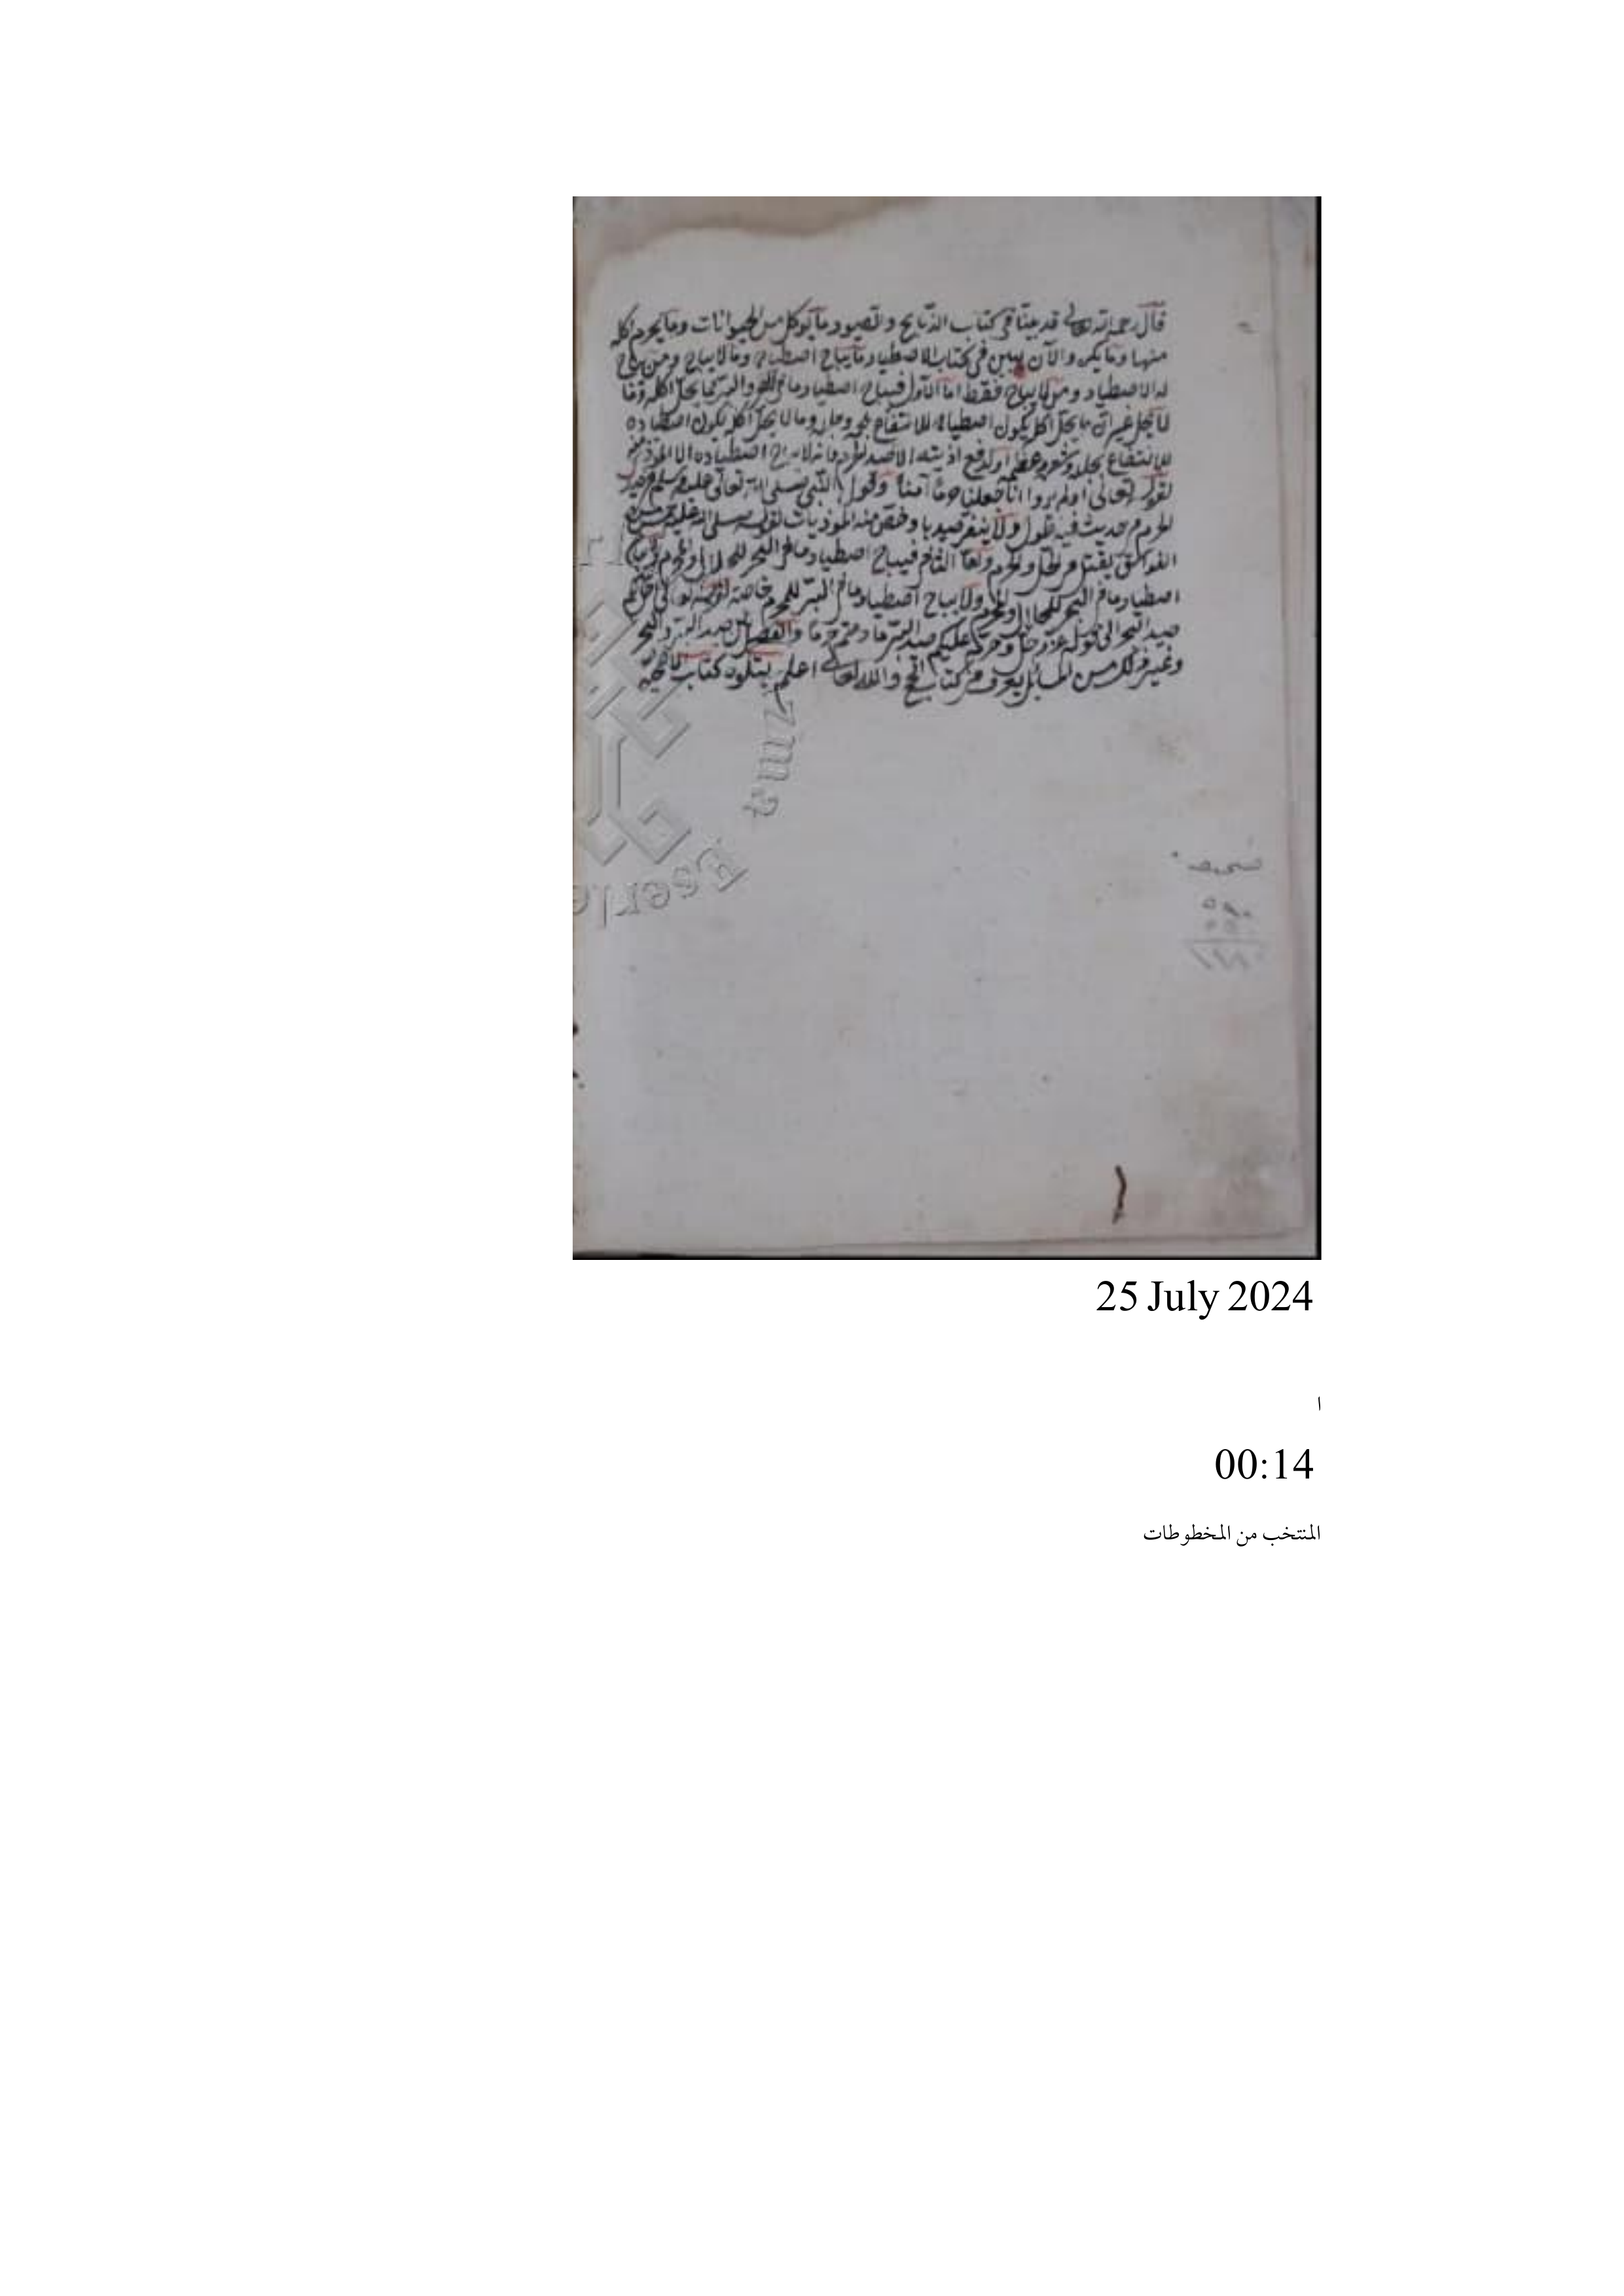 قال رحمه الله تعالى قد بينا في كتاب الذبايح والصيود ما يوكل من الحيوانات وما يحرم اكله
منها وما يكره والآن نبين في كتاب الاصطياد ما يباح اصطياده وما لا يباح ومن يباح
له الاصطياد ومن لا يباح فقط اما الأول فيباح اصطياد ما في البحر والبر مما يحل اكله وما
لا يحل غير ان ما يحل اكله يكون اصطياده للانتفاع بلحمه وما لا يحل اكله يكون اصطياده
للانتفاع بجلده وشعره وعظمه او لدفع اذيته الا صيد الحرم فانه لا يباح اصطياده الا الموذي منه
لقوله تعالى اولم يروا انا جعلنا حرما آمنا وقول النبي صلى الله تعالى عليه وسلم في صيد
الحرم في حديث فيه طول ولا ينفر صيدها وخص منه الموذيات لقوله صلى الله عليه وسلم خمس من
الفواسق يقتلن في الحل والحرم واما الثاني فيباح اصطياد ما في البحر للحلال والمحرم
اصطياد ما في البحر للحلال والمحرم ولا يباح اصطياد ما في البر للمحرم خاصة لقوله تعالى احل لكم
صيد البحر الى قوله عز وجل وحرم عليكم صيد البر ما دمتم حرما والفصل بين صيد البر والبحر
وغير ذلك من المسائل يعرف في كتاب الحج والله تعالى اعلم يتلوه كتاب
25 July 2024
ا
00:14
المنتخب من المخطوطات